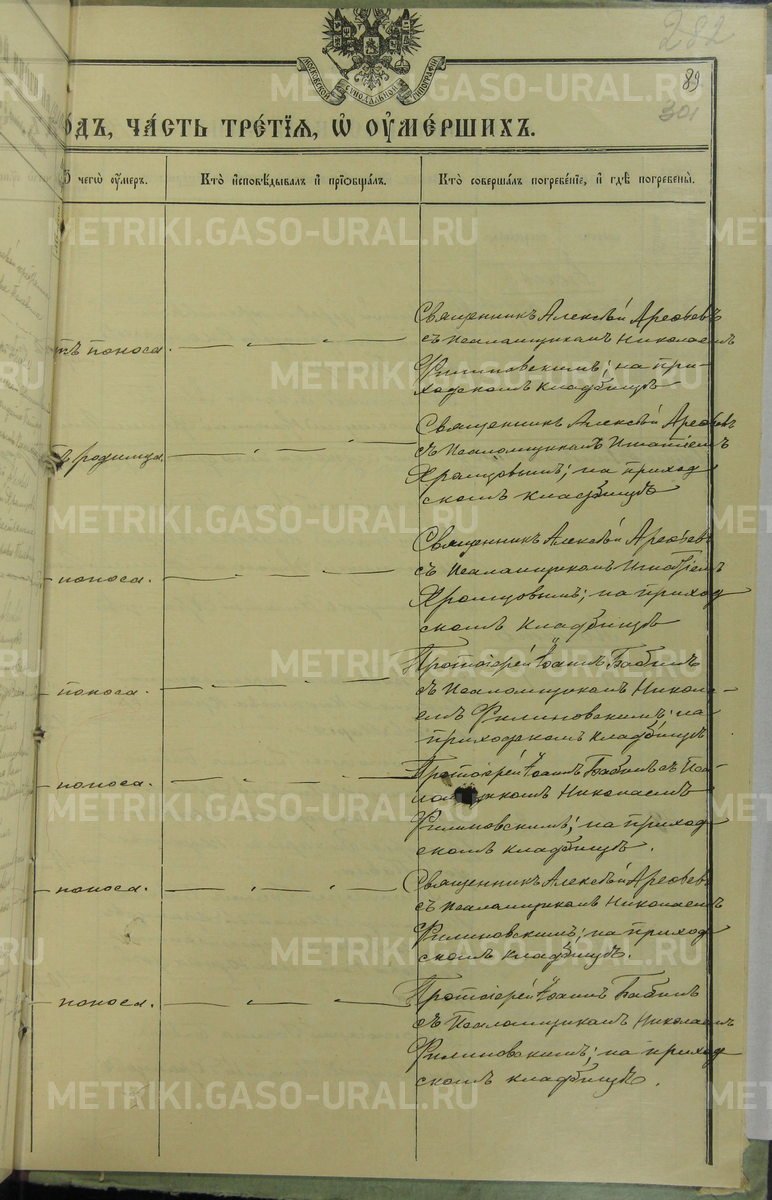 282
89
301
МОСКОВСКОЙ СѴНОДАЛЬНОЙ ТИПОГРАФІИ
ОДЪ, ЧА́СТЬ ТРЕ́ТІѦ, Ѡ҆ ОУ҆МЕ́РШИХЪ.
Ѿ чегѡ̀ оу҆́меръ.
Кто̀ и҆сповѣ́дывалъ и҆ прїѡбща́лъ.
Кто̀ соверша́лъ погребе́нїе, и҆ гдѣ̀ погребены̀.
METRIKI.GASO-URAL.RU
тъ поноса.
Священникъ Алексѣй Арефьевъ
съ псаломщикомъ Николаемъ
Филиновскимъ; на при-
ходскомъ кладбищѣ
ъ родимца.
Священникъ Алексѣй Арефьевъ
съ Псаломщикомъ Игнатіемъ
Храмцовымъ; на приход
скомъ кладбищѣ
поноса.
Священникъ Алексѣй Арефьевъ
съ Псаломщикомъ Игнатіемъ
Храмцовымъ; на приход
скомъ кладбищѣ
поноса.
Протоіерей Іоаннъ Бабинъ
съ Псаломщикомъ Никола-
емъ Филиновскимъ; на
приходскомъ кладбищѣ
поноса.
Протоіерей Іоаннъ Бабинъ съ Пса-
ломщикомъ Николаемъ
Филиновскимъ; на приход
скомъ кладбищѣ.
поноса.
Священникъ Алексѣй Арефьевъ
съ псаломщикомъ Николаемъ
Филиновскимъ; на приход
скомъ кладбищѣ.
поноса.
Протоіерей Іоаннъ Бабинъ
съ Псаломщикомъ Николаемъ
Филиновскимъ; на приход
скомъ кладбищѣ.